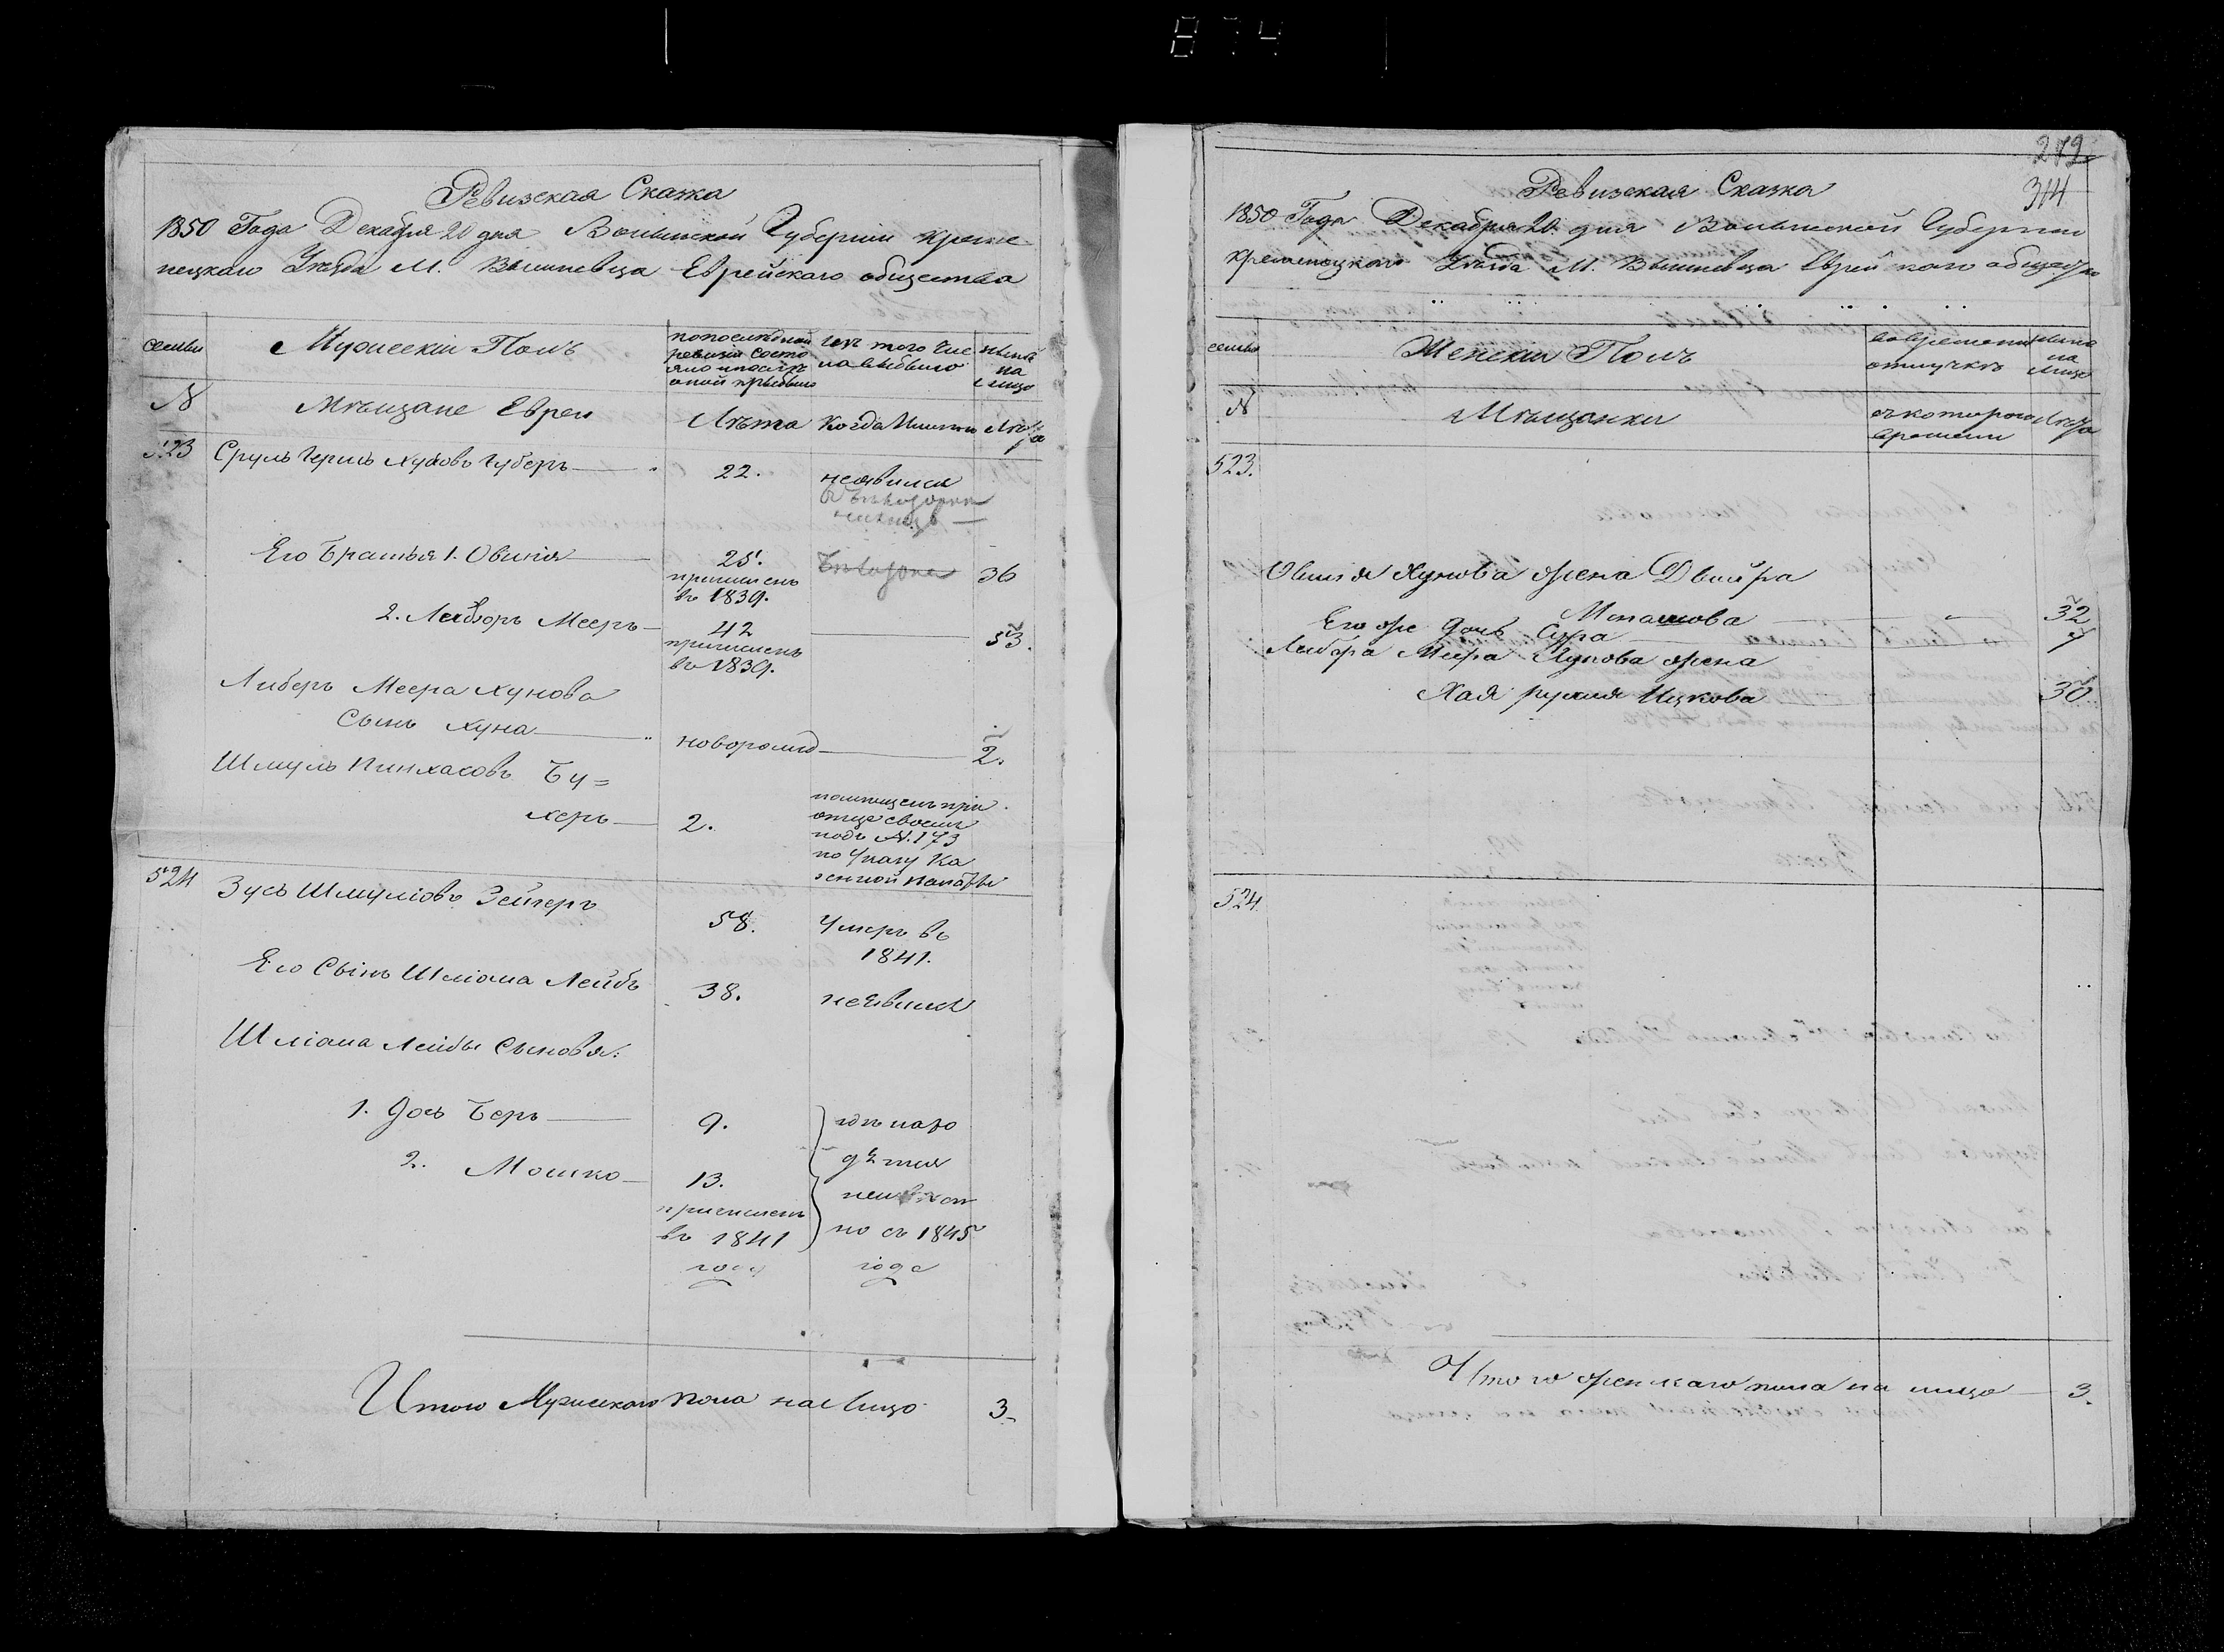 874
Ревизская Сказка
1850 Года Декабря 20 дня Волынской Губернии Креме
нецкаго Уезда М. Вышневца Еврейскаго общества
семьи
Мужескій Полъ
по последней
ревизіи состо
яло и после
оной прибыло
Изъ того чис
ла выбыло
ныне
на
лицо
№
Мѣщане Евреи
Лѣта
Когда Именно
Лѣта
523
Сруль Гершъ Хуновъ Губеръ
22.
неявился
Его Братья 1. Овшія
25.
причисленъ
въ 1839.
36
2. Лейзоръ Мееръ
42
причисленъ
въ 1839.
53.
Либеръ Меера Хунова
Сынъ Хуна
новорожд
2.
Шмуль Пинхасовъ Бу=
херъ
2.
помещенъ при
отце своемъ
подъ №. 173
по Указу Ка
зенной палаты
524
Зусь Шмуліовъ Зейгеръ
58.
Умеръ въ
1841.
Его Сынъ Шліома Лейбъ
38.
неявился
Шліома Лейбы Сыновя:
1. Іось Беръ
9.
2. Мошко
13.
причисленъ
въ 1841
года
но съ 1845
года
Итого Мужескаго пола на Лицо
3.
272
314
Ревизская Сказка
1850 Года Декабря 20 дня Волынской Губернии
Кременецкаго Уезда М. Вышневца Еврейскаго общества
семьи
Женскій Полъ
во временной
отлучкѣ
ныне
на
лицо
№
Мѣщанки
съ котораго
времени
Лѣта
523.
Овшія Хунова жена Двойра
Мошкова
32
Его же дочь Сура
7
Либера Меера Хунова жена
Хая Рухля Ицкова
30.
524
Итого женскаго пола на лицо
3.